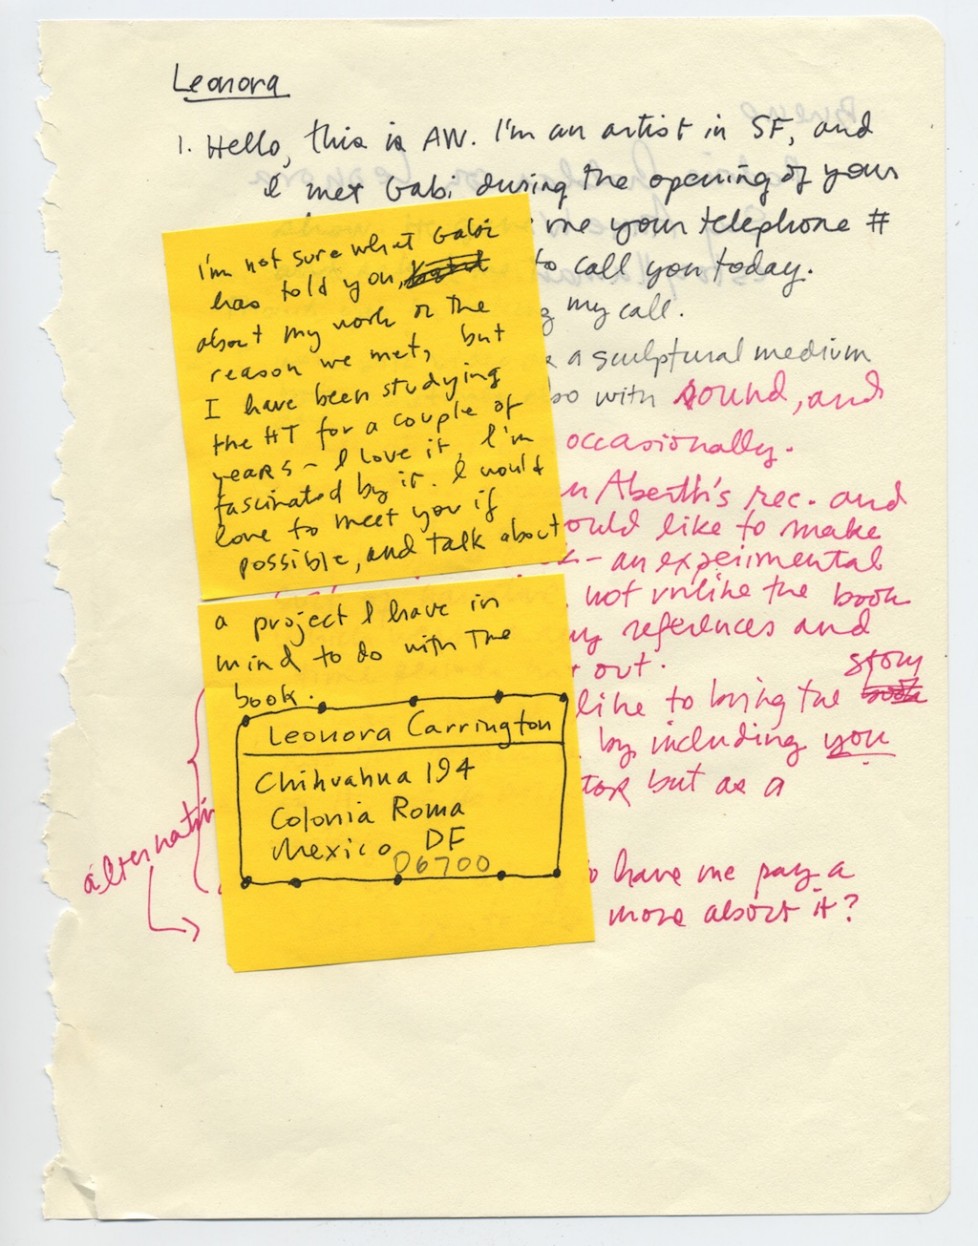 Leonora
1. Hello, this is AW. I'm an artist in SF, and
I met Gabi during the opening of your
me your telephone #
to call you today.
my call.
a sculptural medium
with sound, and
occasionally.
Aberth's rec. and
would like to make
- an experimental
not unlike the book
references and
out.
story
like to bring the
by including you
but as a
have me pay a
more about it?
alternative
I'm not sure what Gabi
has told you,
about my work or the
reason we met, but
I have been studying
the HT for a couple of
years - I love it, I'm
fascinated by it. I would
love to meet you if
possible, and talk about
a project I have in
mind to do with the
book.
Leonora Carrington
Chihuahua 194
Colonia Roma
Mexico DF
06700